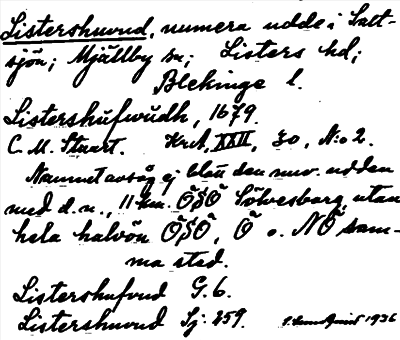 Listershuvud, numera udde i Salt-
sjön; Mjällby sn; Listers hd;
Blekinge l.
Listershufwudh, 1679.
C. M. Stuart. KrA, XXII, 30, N:o 2.
Namnet avsåg ej blott den nuv. udden
med d. n., 11 km. ÖSÖ Sölvesborg, utan
hela halvön ÖSÖ, Ö o. NÖ sam-
ma stad.
Listershufvud G. 6.
Listershuvud Sj: 259.
1936